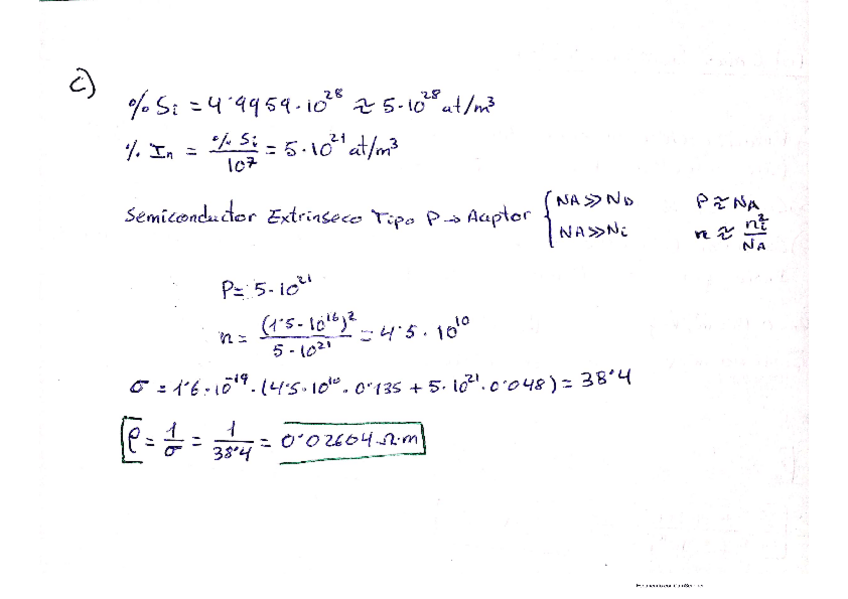 c)
% Si = 4'9959·10^28 ≈ 5·10^28 at/m³
% In = % Si / 10^7 = 5·10^21 at/m³
Semiconductor Extrinseco Tipo P → Aceptor { NA >> ND P ≈ NA
NA >> Ni n ≈ ni² / NA
P = 5·10^21
n = (1'5·10^16)² / 5·10^21 = 4'5·10^10
σ = 1'6·10^-19·(4'5·10^10·0'135 + 5·10^21·0'048) = 38'4
ρ = 1/σ = 1/38'4 = 0'02604 Ω·m